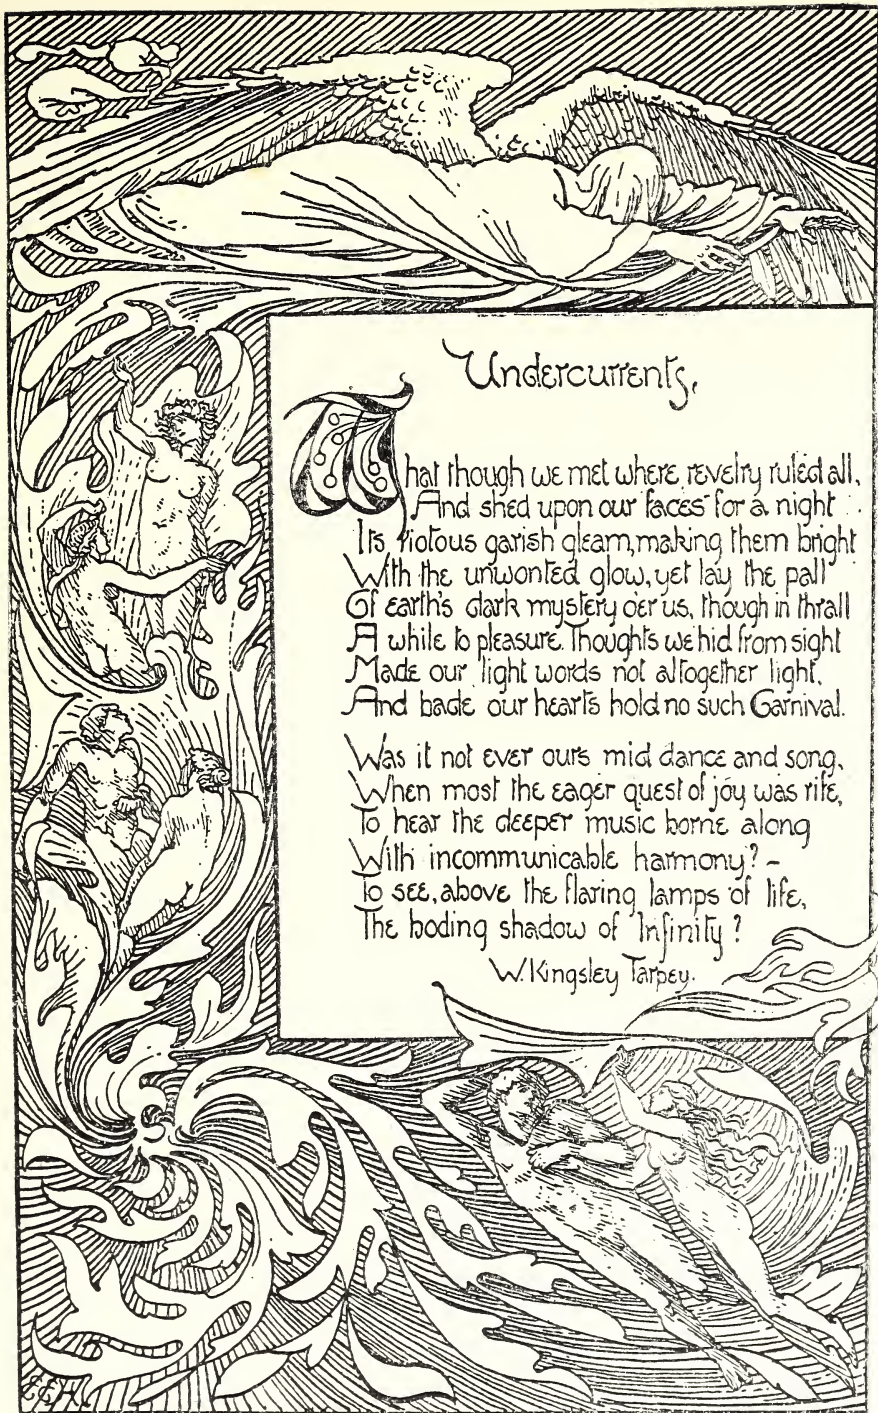 Undercurrents,
What though we met where revelry ruled all,
And shed upon our faces for a night
Its riotous garish gleam, making them bright
With the unwonted glow, yet lay the pall
Of earth's dark mystery o'er us, though in thrall
A while to pleasure. Thoughts we hid from sight
Made our light words not altogether light,
And bade our hearts hold no such Carnival.
Was it not ever ours mid dance and song,
When most the eager quest of joy was rife,
To hear the deeper music borne along
With incommunicable harmony? –
To see, above the flaring lamps of life,
The boding shadow of Infinity?
W. Kingsley Tarpey.